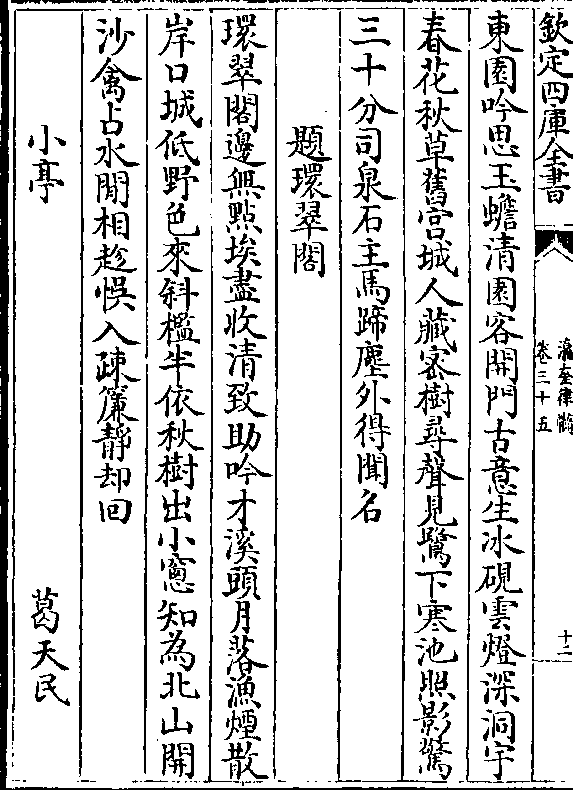 欽定四庫全書
瀛奎律髓
卷三十五
十二
東園吟思玉蟾清園客開門古意生冰硯雲燈深洞宇
春花秋草舊宮城人藏密樹尋聲見鷺下寒池照影驚
三十分司泉石主馬蹄塵外得聞名
題環翠閣
環翠閣邊無點埃盡收清致助吟才溪頭月落漁煙散
岸口城低野色來斜檻半依秋樹出小窻知為北山開
沙禽占水閒相趂悞入疎簾靜却回
小亭 葛天民